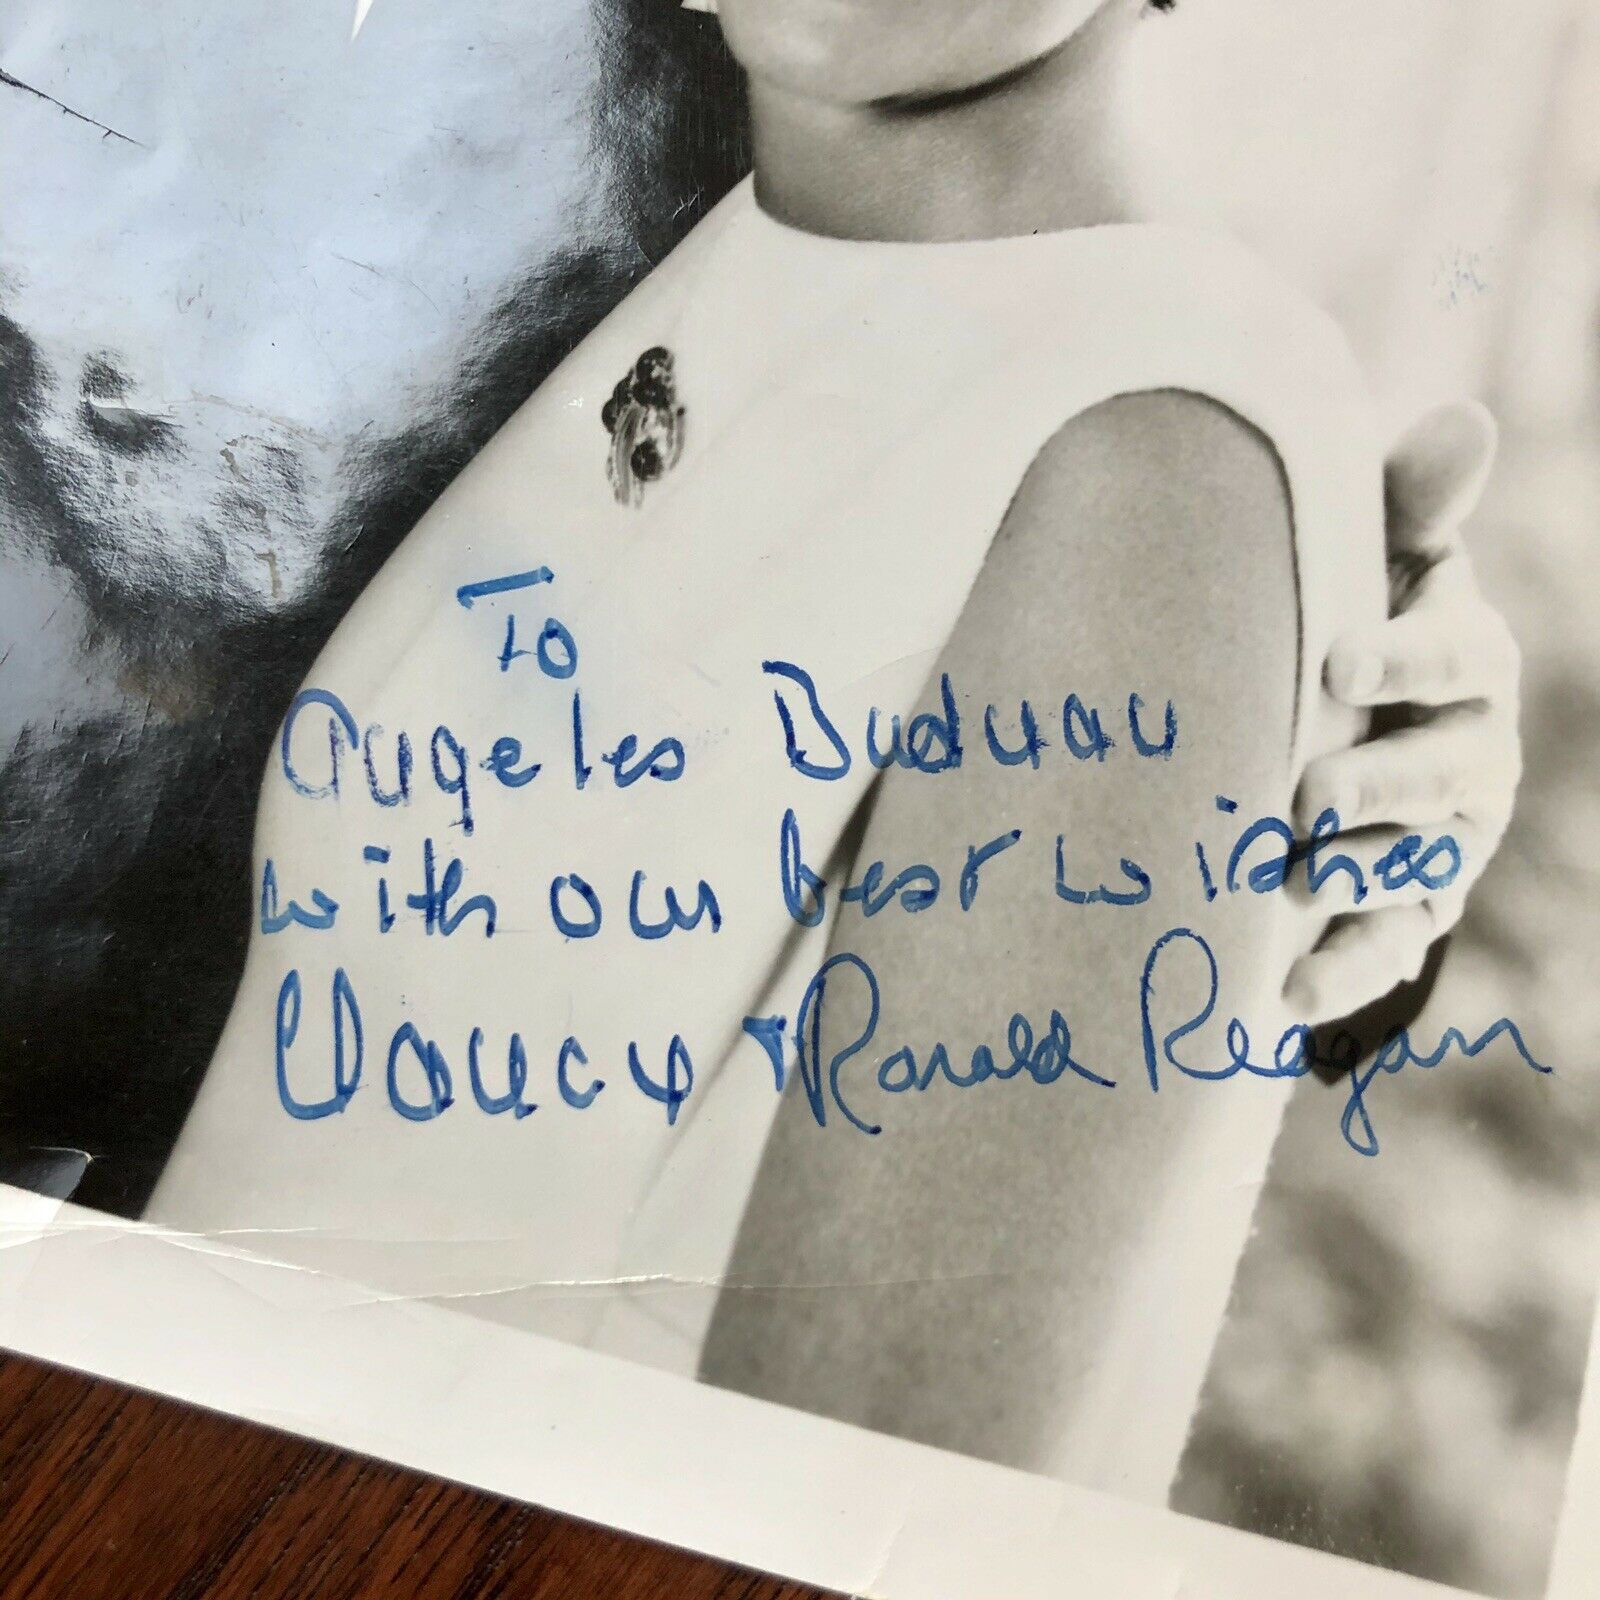 To
Angeles Budnau
with our best wishes
Nancy + Ronald Reagan